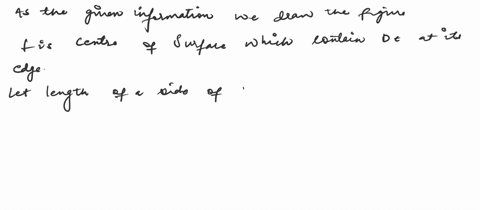 As the given information we draw the figure
f is centre of Surface which contain DE at its
edge.
Let length of a side of